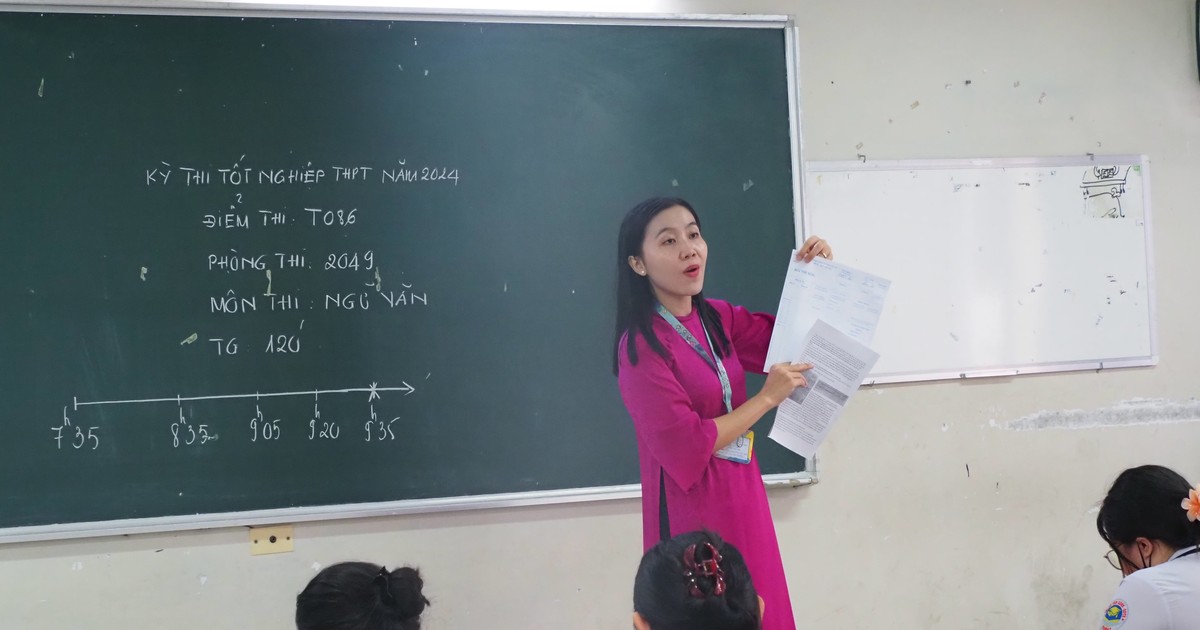 KỲ THI TỐT NGHIỆP THPT NĂM 2024
ĐIỂM THI: T036
PHÒNG THI: 2049
MÔN THI: NGỮ VĂN
TG 120'
7h35 8h35 9h05 9h20 9h35